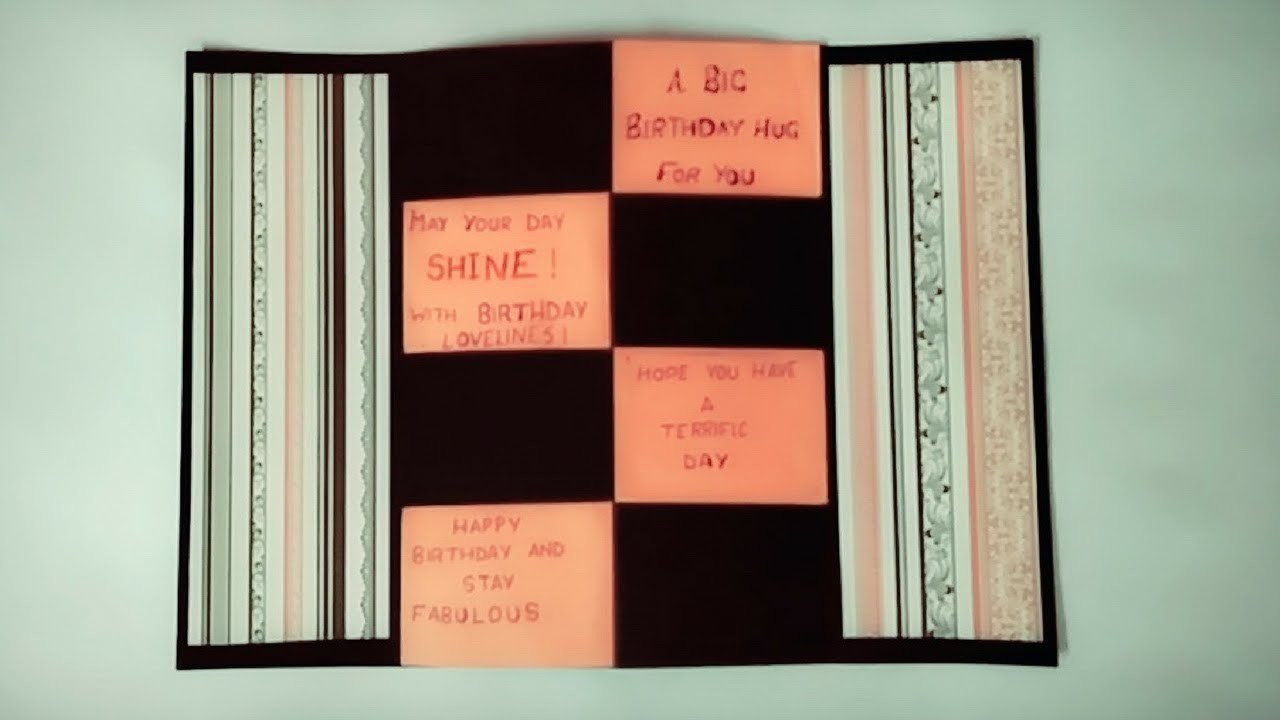 A BIG
BIRTHDAY HUG
FOR YOU
MAY YOUR DAY
SHINE!
WITH BIRTHDAY
LOVELINES!
HOPE YOU HAVE
A
TERRIFIC
DAY
HAPPY
BIRTHDAY AND
STAY
FABULOUS